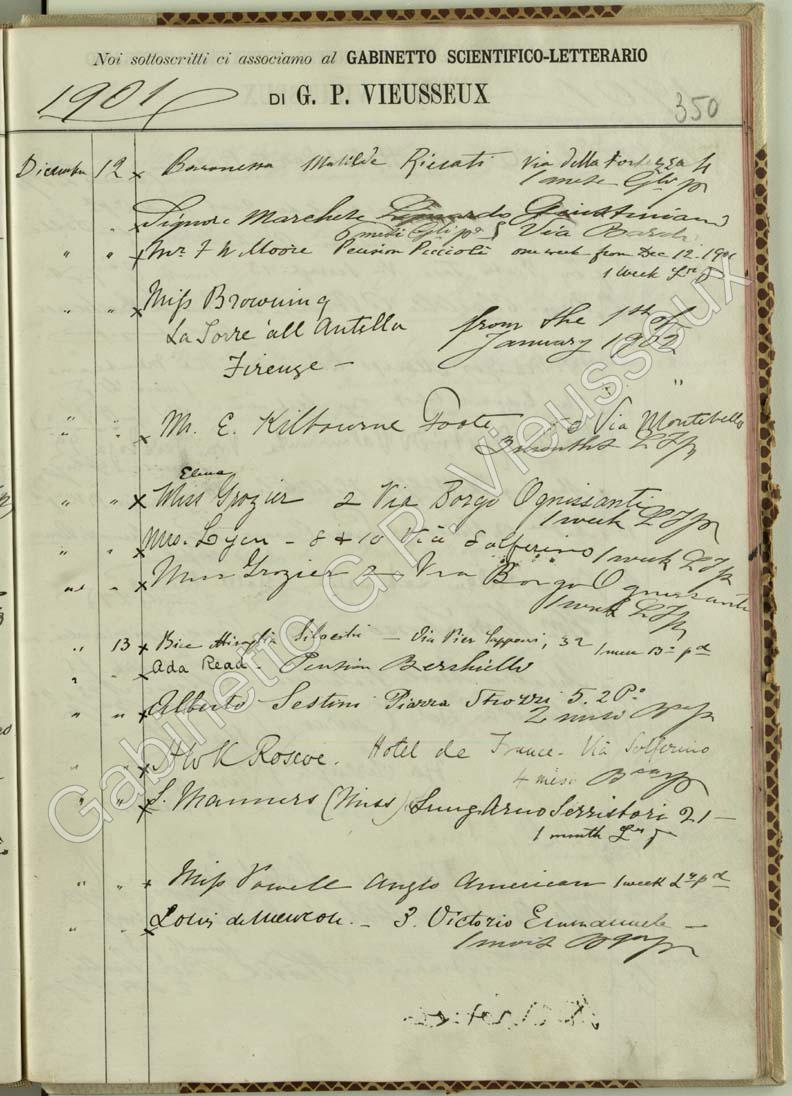 Noi sottoscritti ci associamo al GABINETTO SCIENTIFICO-LETTERARIO
1901
DI G. P. VIEUSSEUX
350
Dicembre 12 x Baronessa Matilde Riccati Via della Fortezza 4
1 mese
Signore Marchese Giustiniani
6 mesi Via Bardi
" " x Mr. F W Moore Pension Piccioli one week from Dec 12. 1901
1 week
" " x Miss Browning
La Torre all'Antella from the 1st of
January 1902
Firenze —
"
" " x M. E. Kilbourne Foote Via Montebello
3 months
Elena
" " x Miss Grozier 2 Via Borgo Ognissanti
1 week
" " x Mrs. Lyen - 8 & 10 Via Solferino 1 week
" " x Miss Grozier 2 Via Borgo Ognissanti
1 week
" 13 x Bice Miraglia Silvestri — Via Pier Capponi, 32 1 mese
" " x Ada Read - Pension
" " x Alberto Sestini Piazza Strozzi 5. 2 Po
2 mesi
" " x Roscoe. Hotel de France - Via Solferino
4 mesi
" " x L. Manners (Miss) Lung'Arno Serristori 21 —
1 month
" " x Miss Powell Anglo American 1 week
" " x Louis de 3. Victorio Emmanuele —
1 mois
Gabinetto G. P. Vieusseux